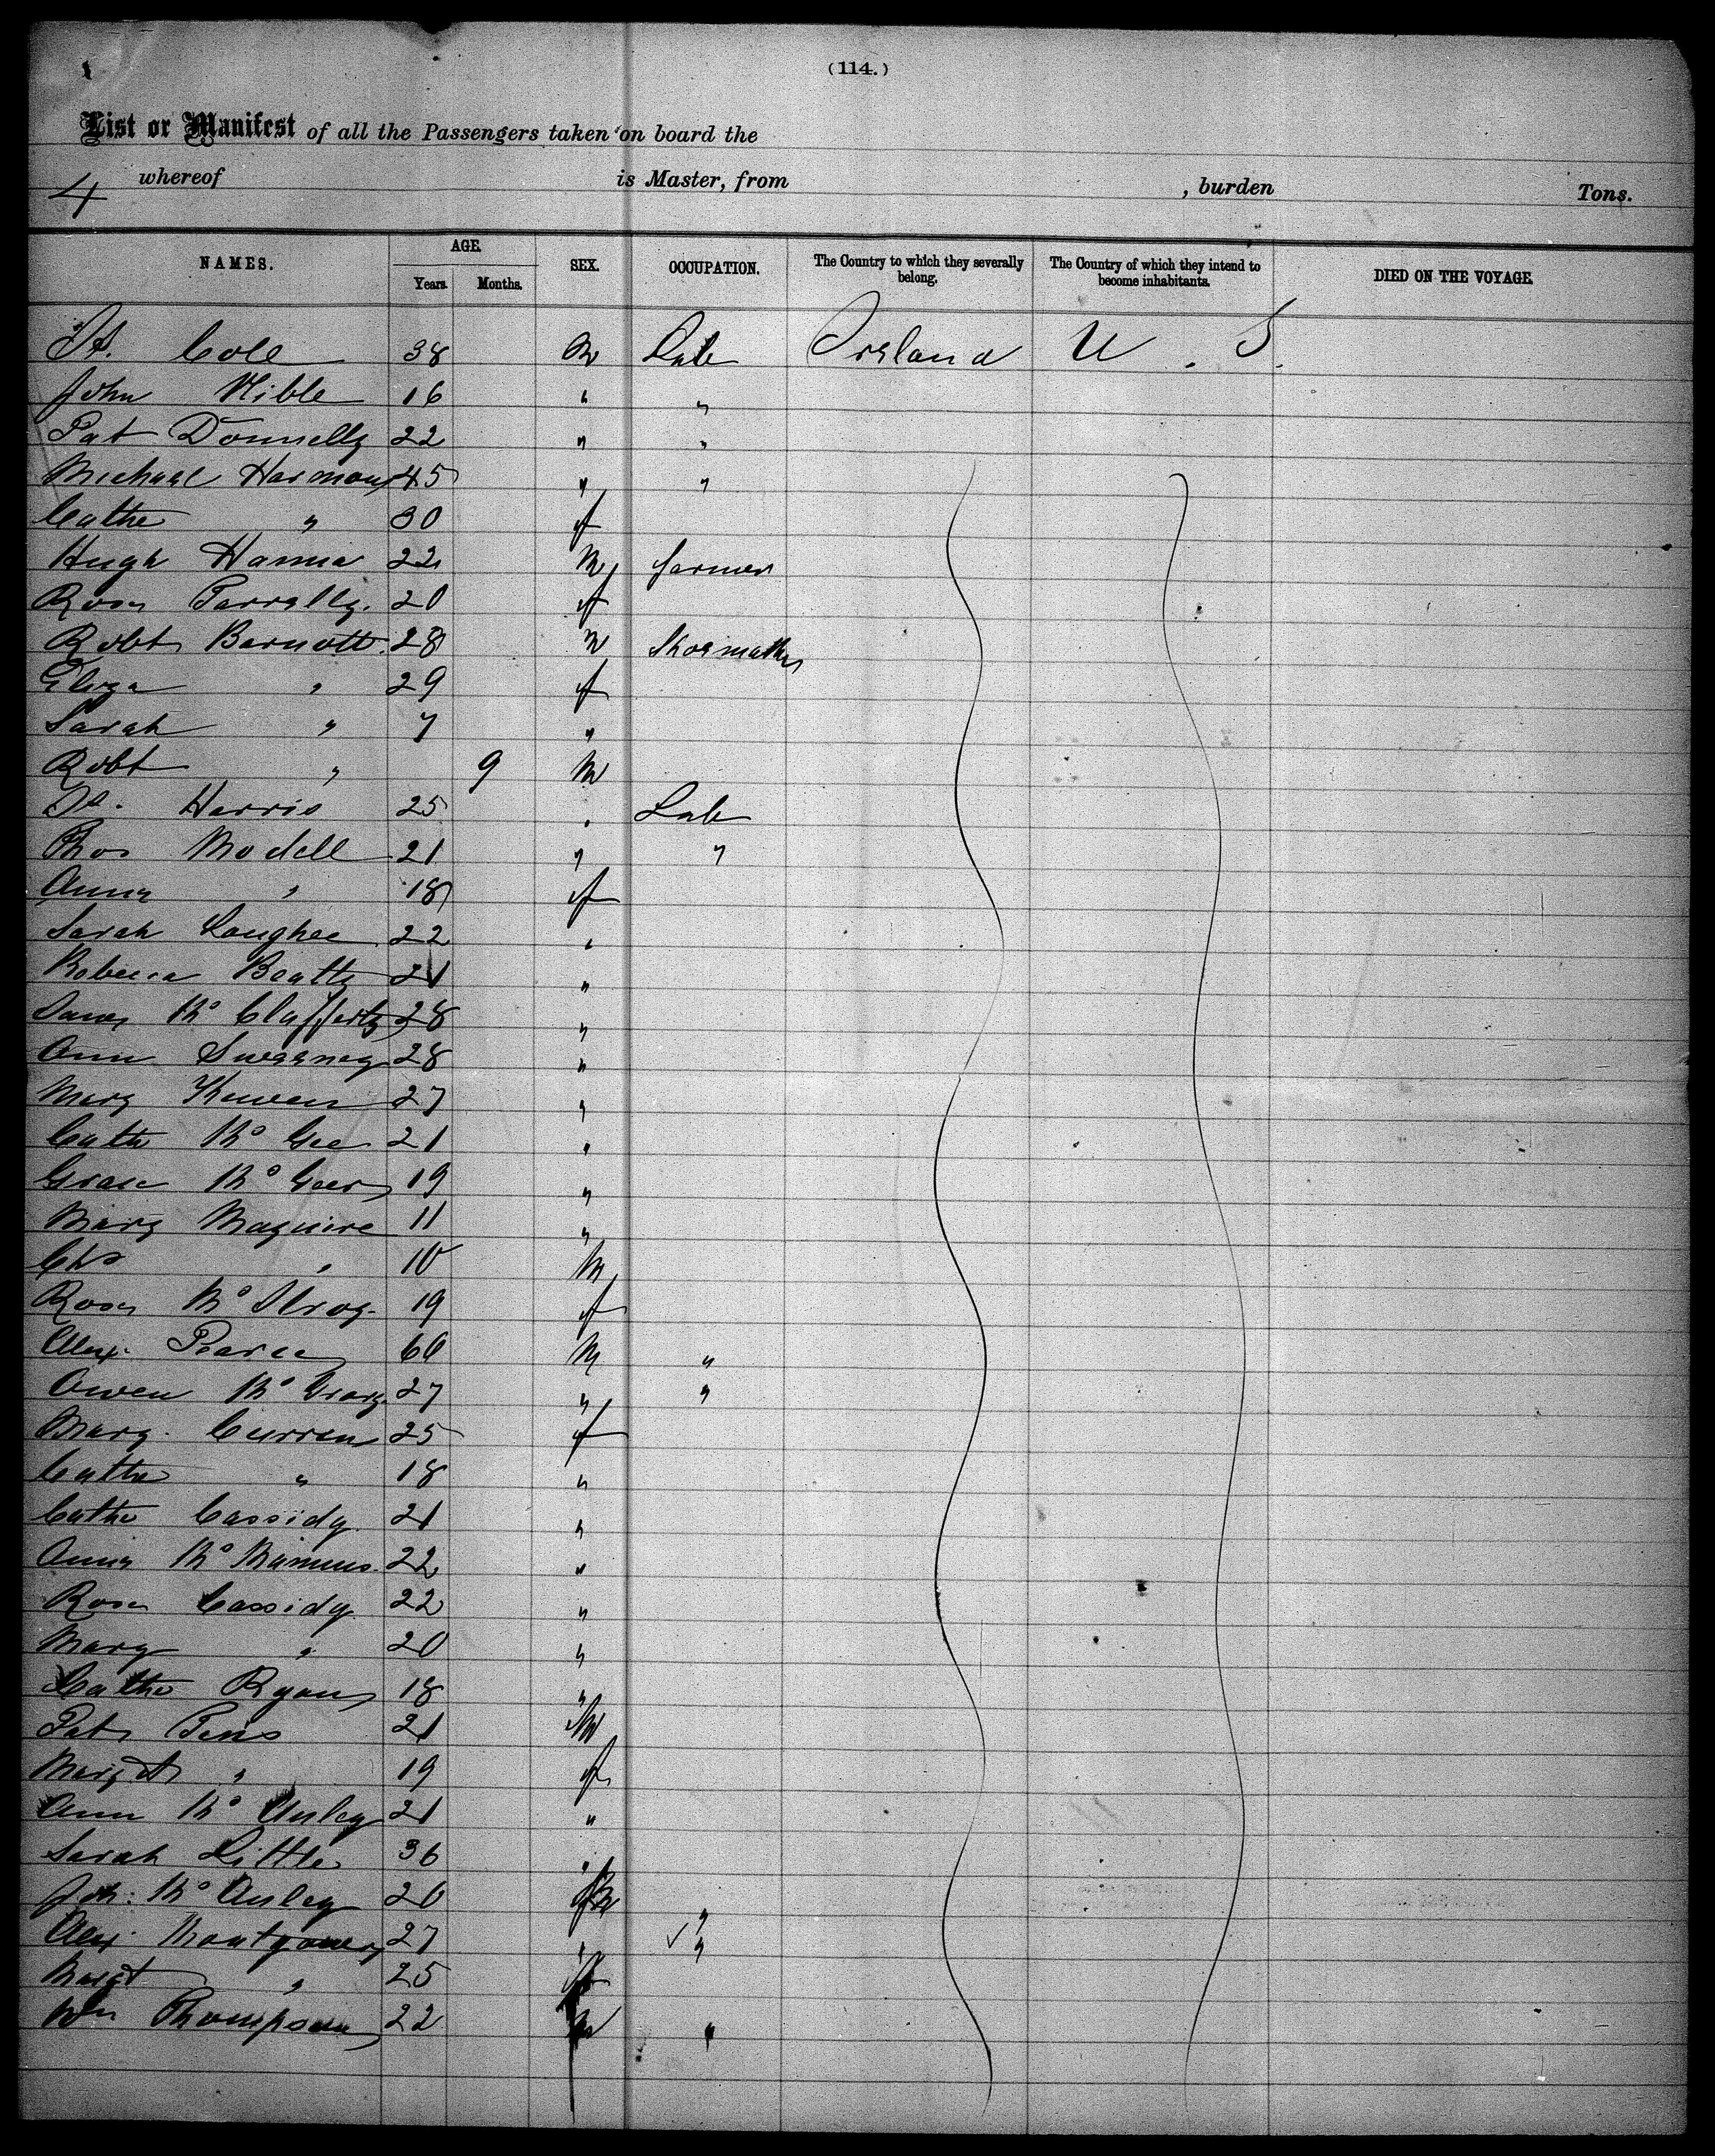 (114.)
List or Manifest of all the Passengers taken on board the
4 whereof is Master, from , burden Tons.
NAMES. AGE. SEX. OCCUPATION. The Country to which they severally belong. The Country of which they intend to become inhabitants. DIED ON THE VOYAGE.
Years. Months.
Cole 38 M Lab Ireland U. S.
John 16 " "
Pat Donnelly 22 " "
Michael 45 " "
Cathe " 30 f
Hugh Hanna 22 M farmer
Rose 20 f
Robt Barnott 28 M Shoemaker
Eliza " 29 f
Sarah " 7 "
Robt " 9 M
Harris 25 " Lab
Thos Modell 21 " "
Anny " 18 f
Sarah Loughee 22 "
Rebecca Beatty 21 "
Mc Clafferty 28 "
Ann Sweeney 28 "
Mary 27 "
Cathe Mc Gee 21 "
Grace Mc 19 "
Mary Maguire 11 "
Chs " 10 M
Rose Mc 19 f
Alex. Pearce 60 M "
Owen Mc 27 " "
Mary Curren 25 f
Cathe " 18 "
Cathe Cassidy 21 "
Annie Mc 22 "
Rose Cassidy 22 "
Mary " 20 "
Cathe Ryan 18 "
Pat 21 M
Margt " 19 f
Ann Mc Auley 21 "
Sarah Little 36 "
Mc Auley 20 M "
Alex. Montgomery 27 " "
Margt " 25 f
Wm Thompson 22 M "